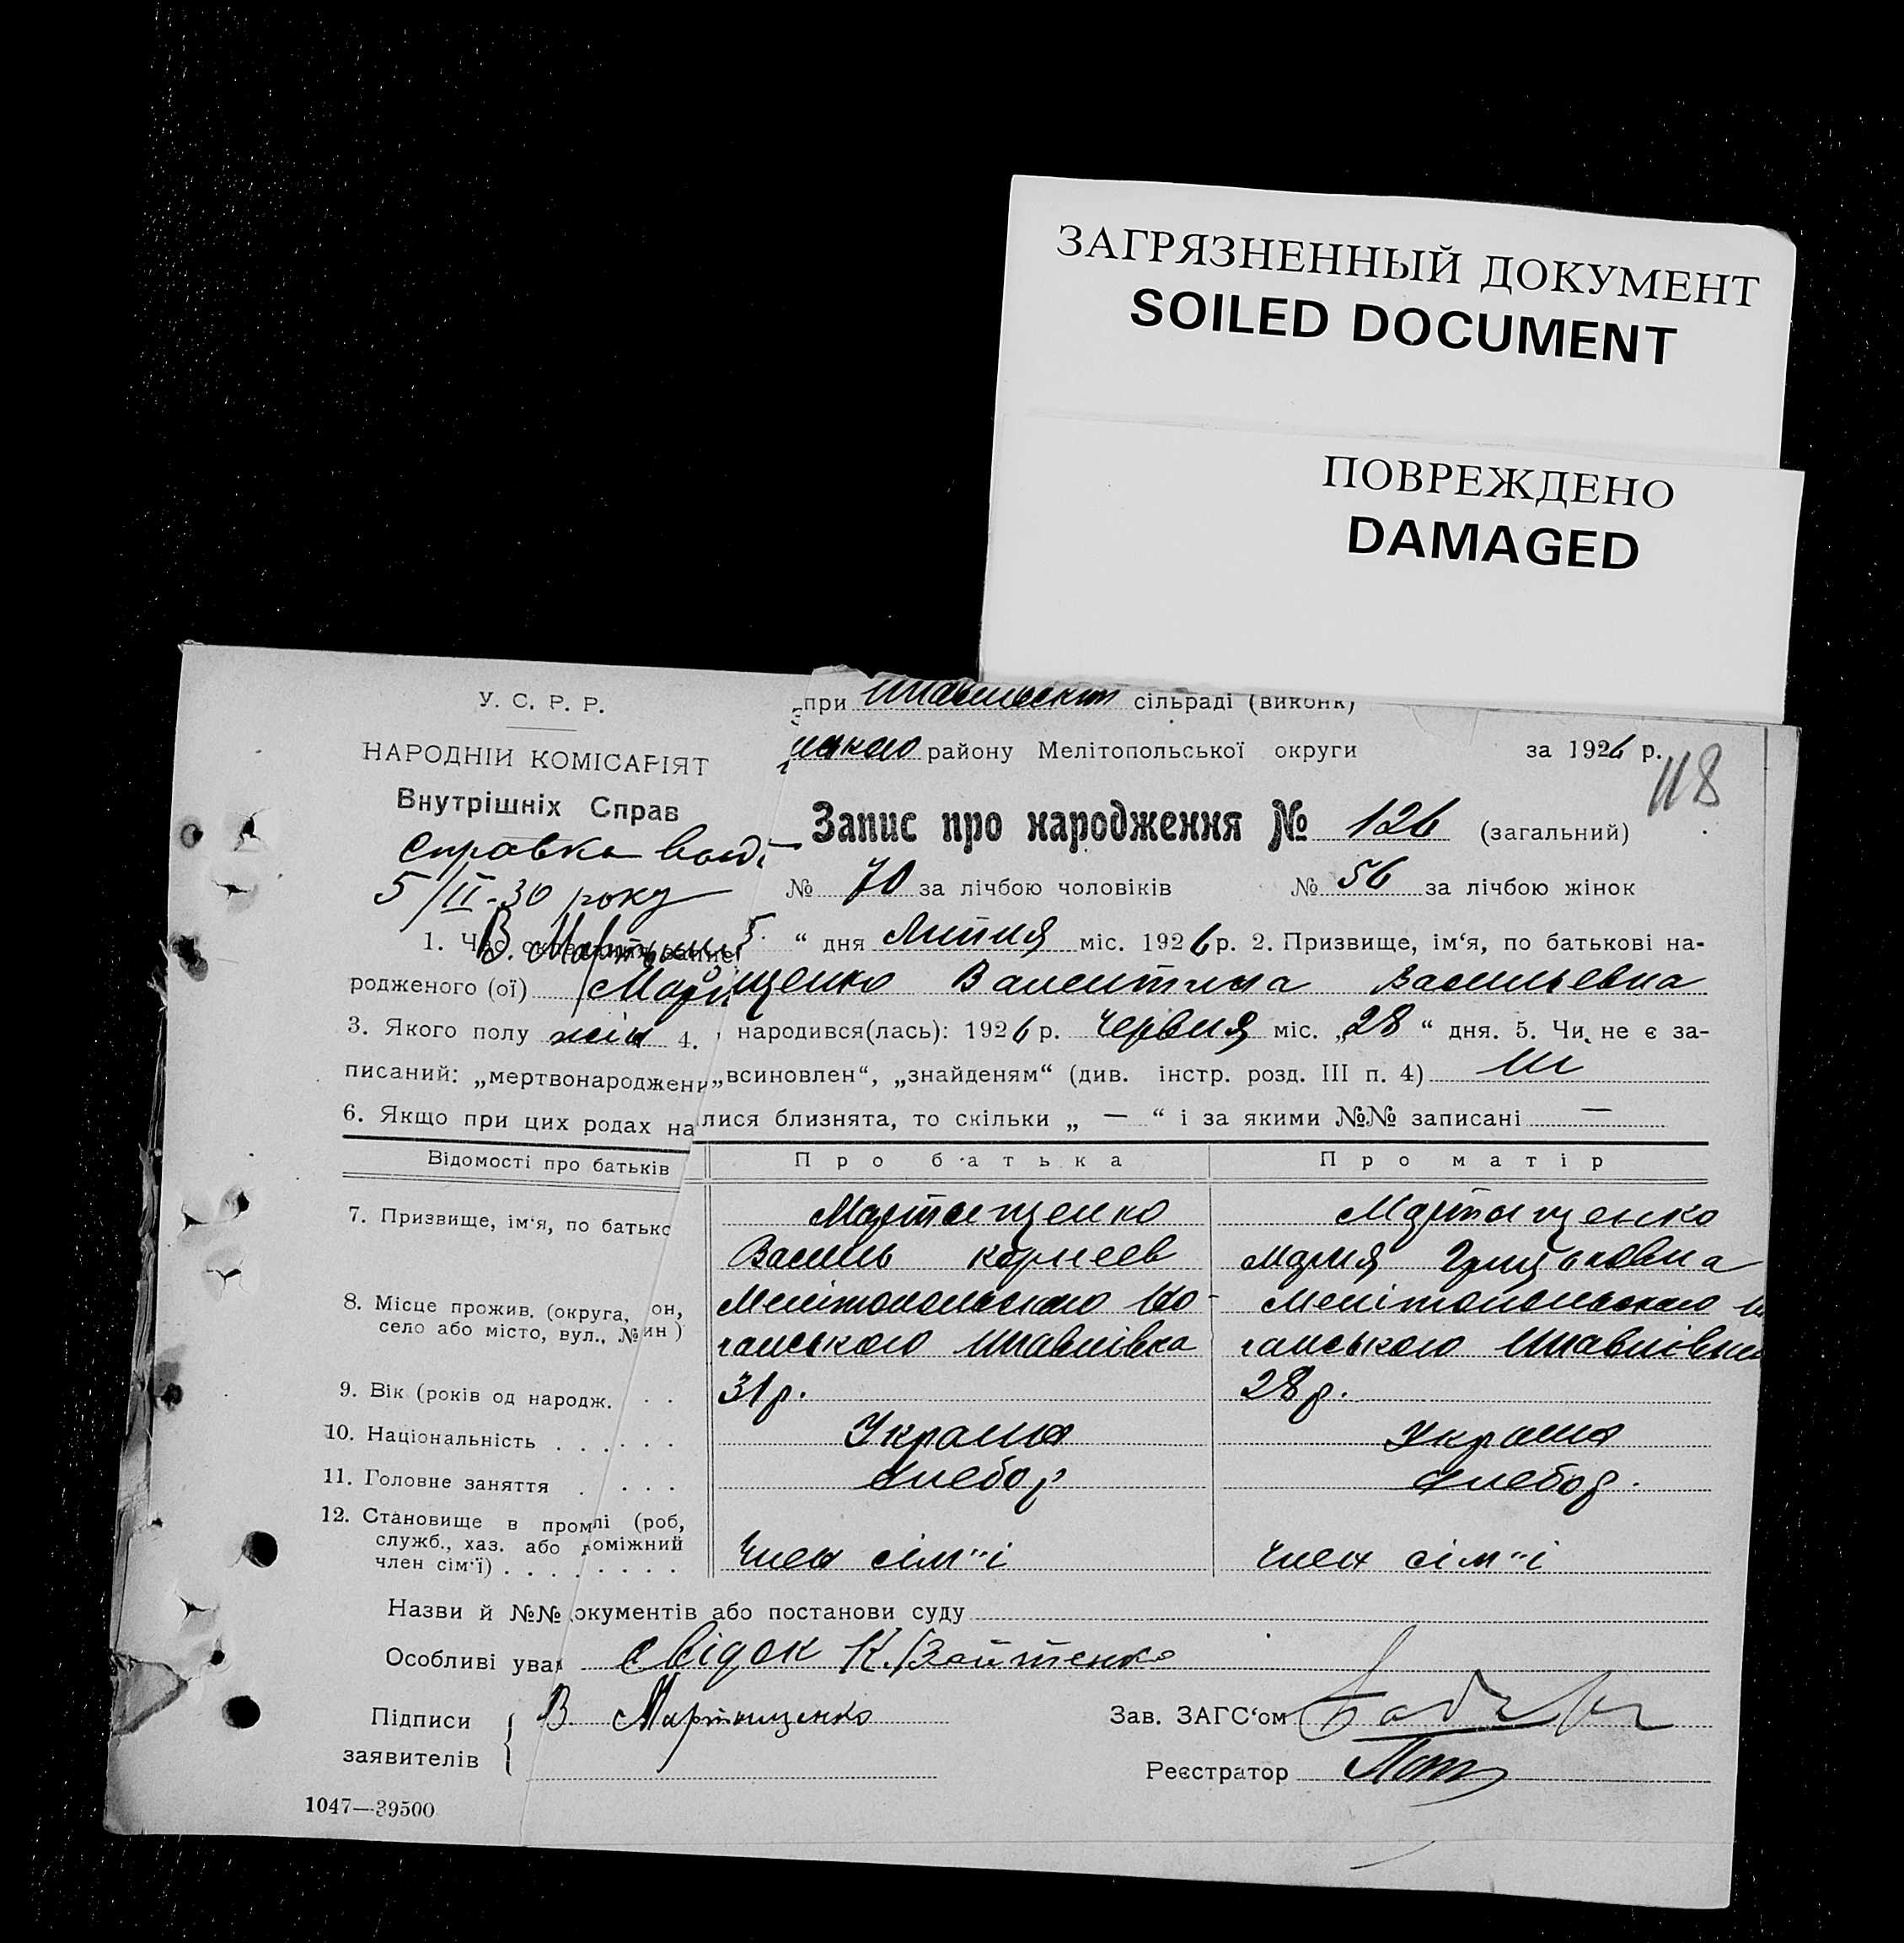 ЗАГРЯЗНЕННЫЙ ДОКУМЕНТ
SOILED DOCUMENT
ПОВРЕЖДЕНО
DAMAGED
У. С. Р. Р.
при сільраді (виконк)
НАРОДНІЙ КОМІСАРІЯТ
району Мелітопольської округи за 1926 р.
118
Внутрішніх Справ
Запис про народження № 126 (загальний)
Справка
5/II-30 року
№ 70 за лічбою чоловіків № 56 за лічбою жінок
1. 5. “ дня Липня міс. 1926 р. 2. Призвище, ім‘я, по батькові на-
родженого (ої) Мартищенко Валентина Васильевна
3. Якого полу жін 4. народився(лась): 1926 р. Червня міс. „28 “ дня. 5. Чи не є за-
писаний: „мертвонароджени „всиновлен“, „знайденям“ (див. інстр. розд. III п. 4) Ні
6. Якщо при цих родах на лися близнята, то скільки „ — “ і за якими №№ записані —
Відомості про батьків Про батька Про матір
7. Призвище, ім‘я, по батько Мартищенко Мартищенко
Василь Корнеев Мария Грицьковна
8. Місце прожив. (округа, он, Мелітопольского Мелітопольского
село або місто, вул., № ин) ганського ганського
9. Вік (років од народж. . . 31 р. 28 р.
10. Національність . . . . . . Україна Україна
11. Головне заняття . . . . Хлебор Хлебор.
12. Становище в пром лі (роб,
служб., хаз. або поміжний
член сім‘ї) . . . . . . . . Член сім"і Член сім"і
Назви й №№ окументів або постанови суду
Особливі уваг Свідок К. Зайтенко
Підписи В. Мартищенко Зав. ЗАГС‘ом
заявителів
Реєстратор
1047—39500